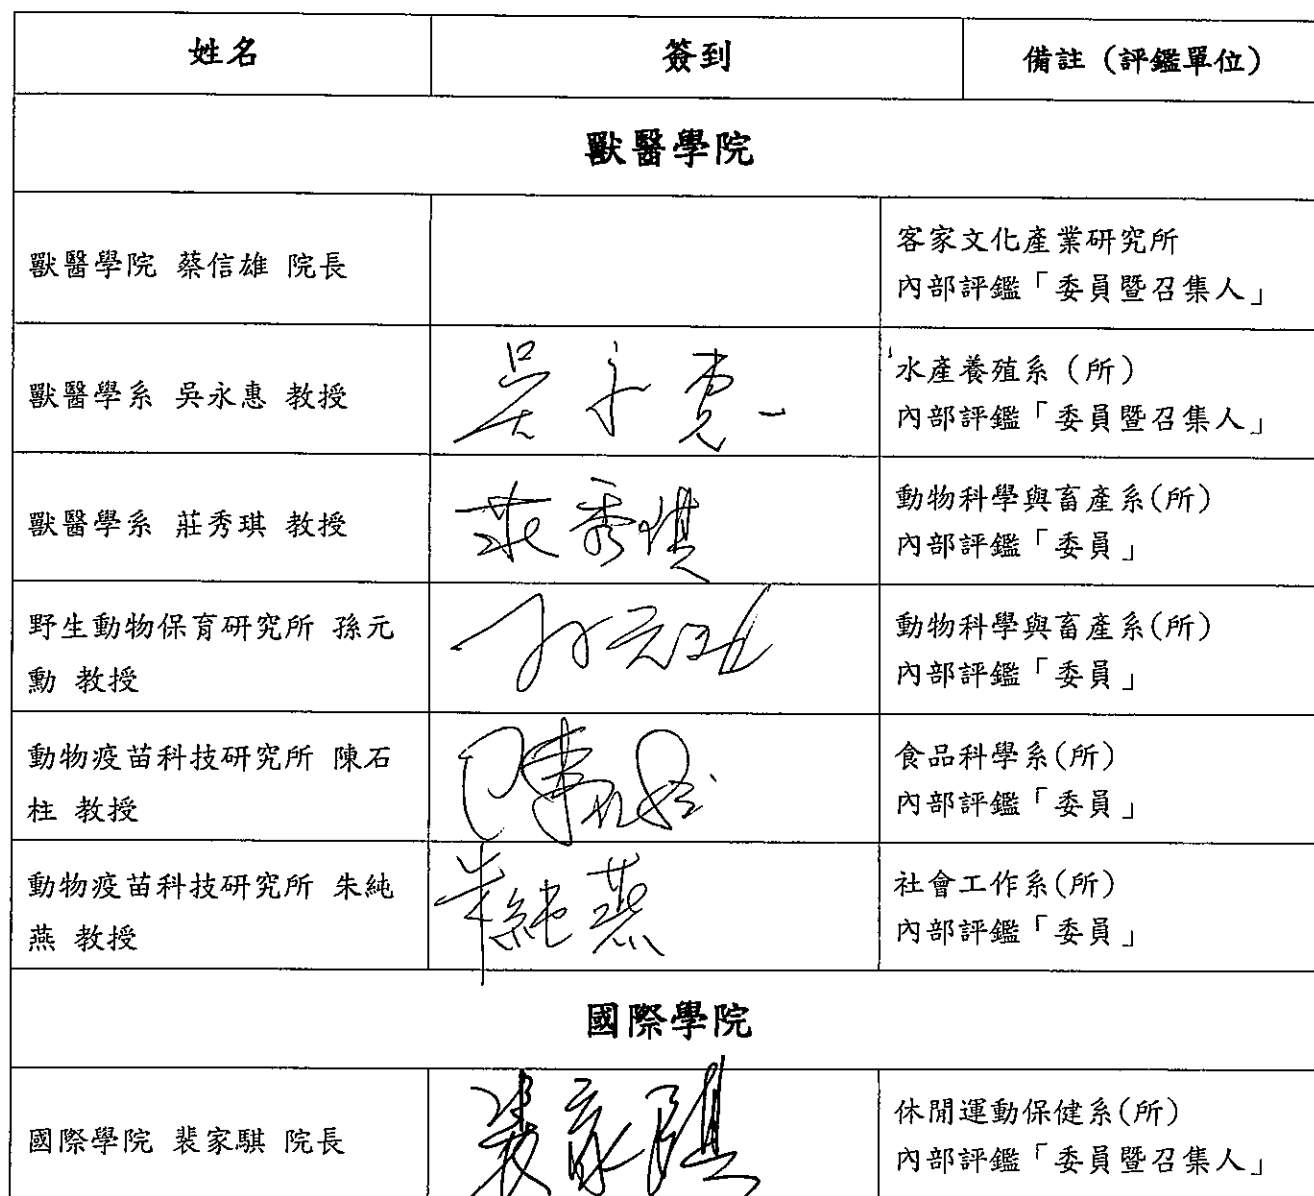 姓名 簽到 備註（評鑑單位）
獸醫學院
獸醫學院 蔡信雄 院長
客家文化產業研究所
內部評鑑「委員暨召集人」
獸醫學系 吳永惠 教授
吳永惠
水產養殖系（所）
內部評鑑「委員暨召集人」
獸醫學系 莊秀琪 教授
莊秀琪
動物科學與畜產系(所)
內部評鑑「委員」
野生動物保育研究所 孫元
勳 教授
孫元勳
動物科學與畜產系(所)
內部評鑑「委員」
動物疫苗科技研究所 陳石
柱 教授
陳石柱
食品科學系(所)
內部評鑑「委員」
動物疫苗科技研究所 朱純
燕 教授
朱純燕
社會工作系(所)
內部評鑑「委員」
國際學院
國際學院 裴家騏 院長
裴家騏
休閒運動保健系(所)
內部評鑑「委員暨召集人」